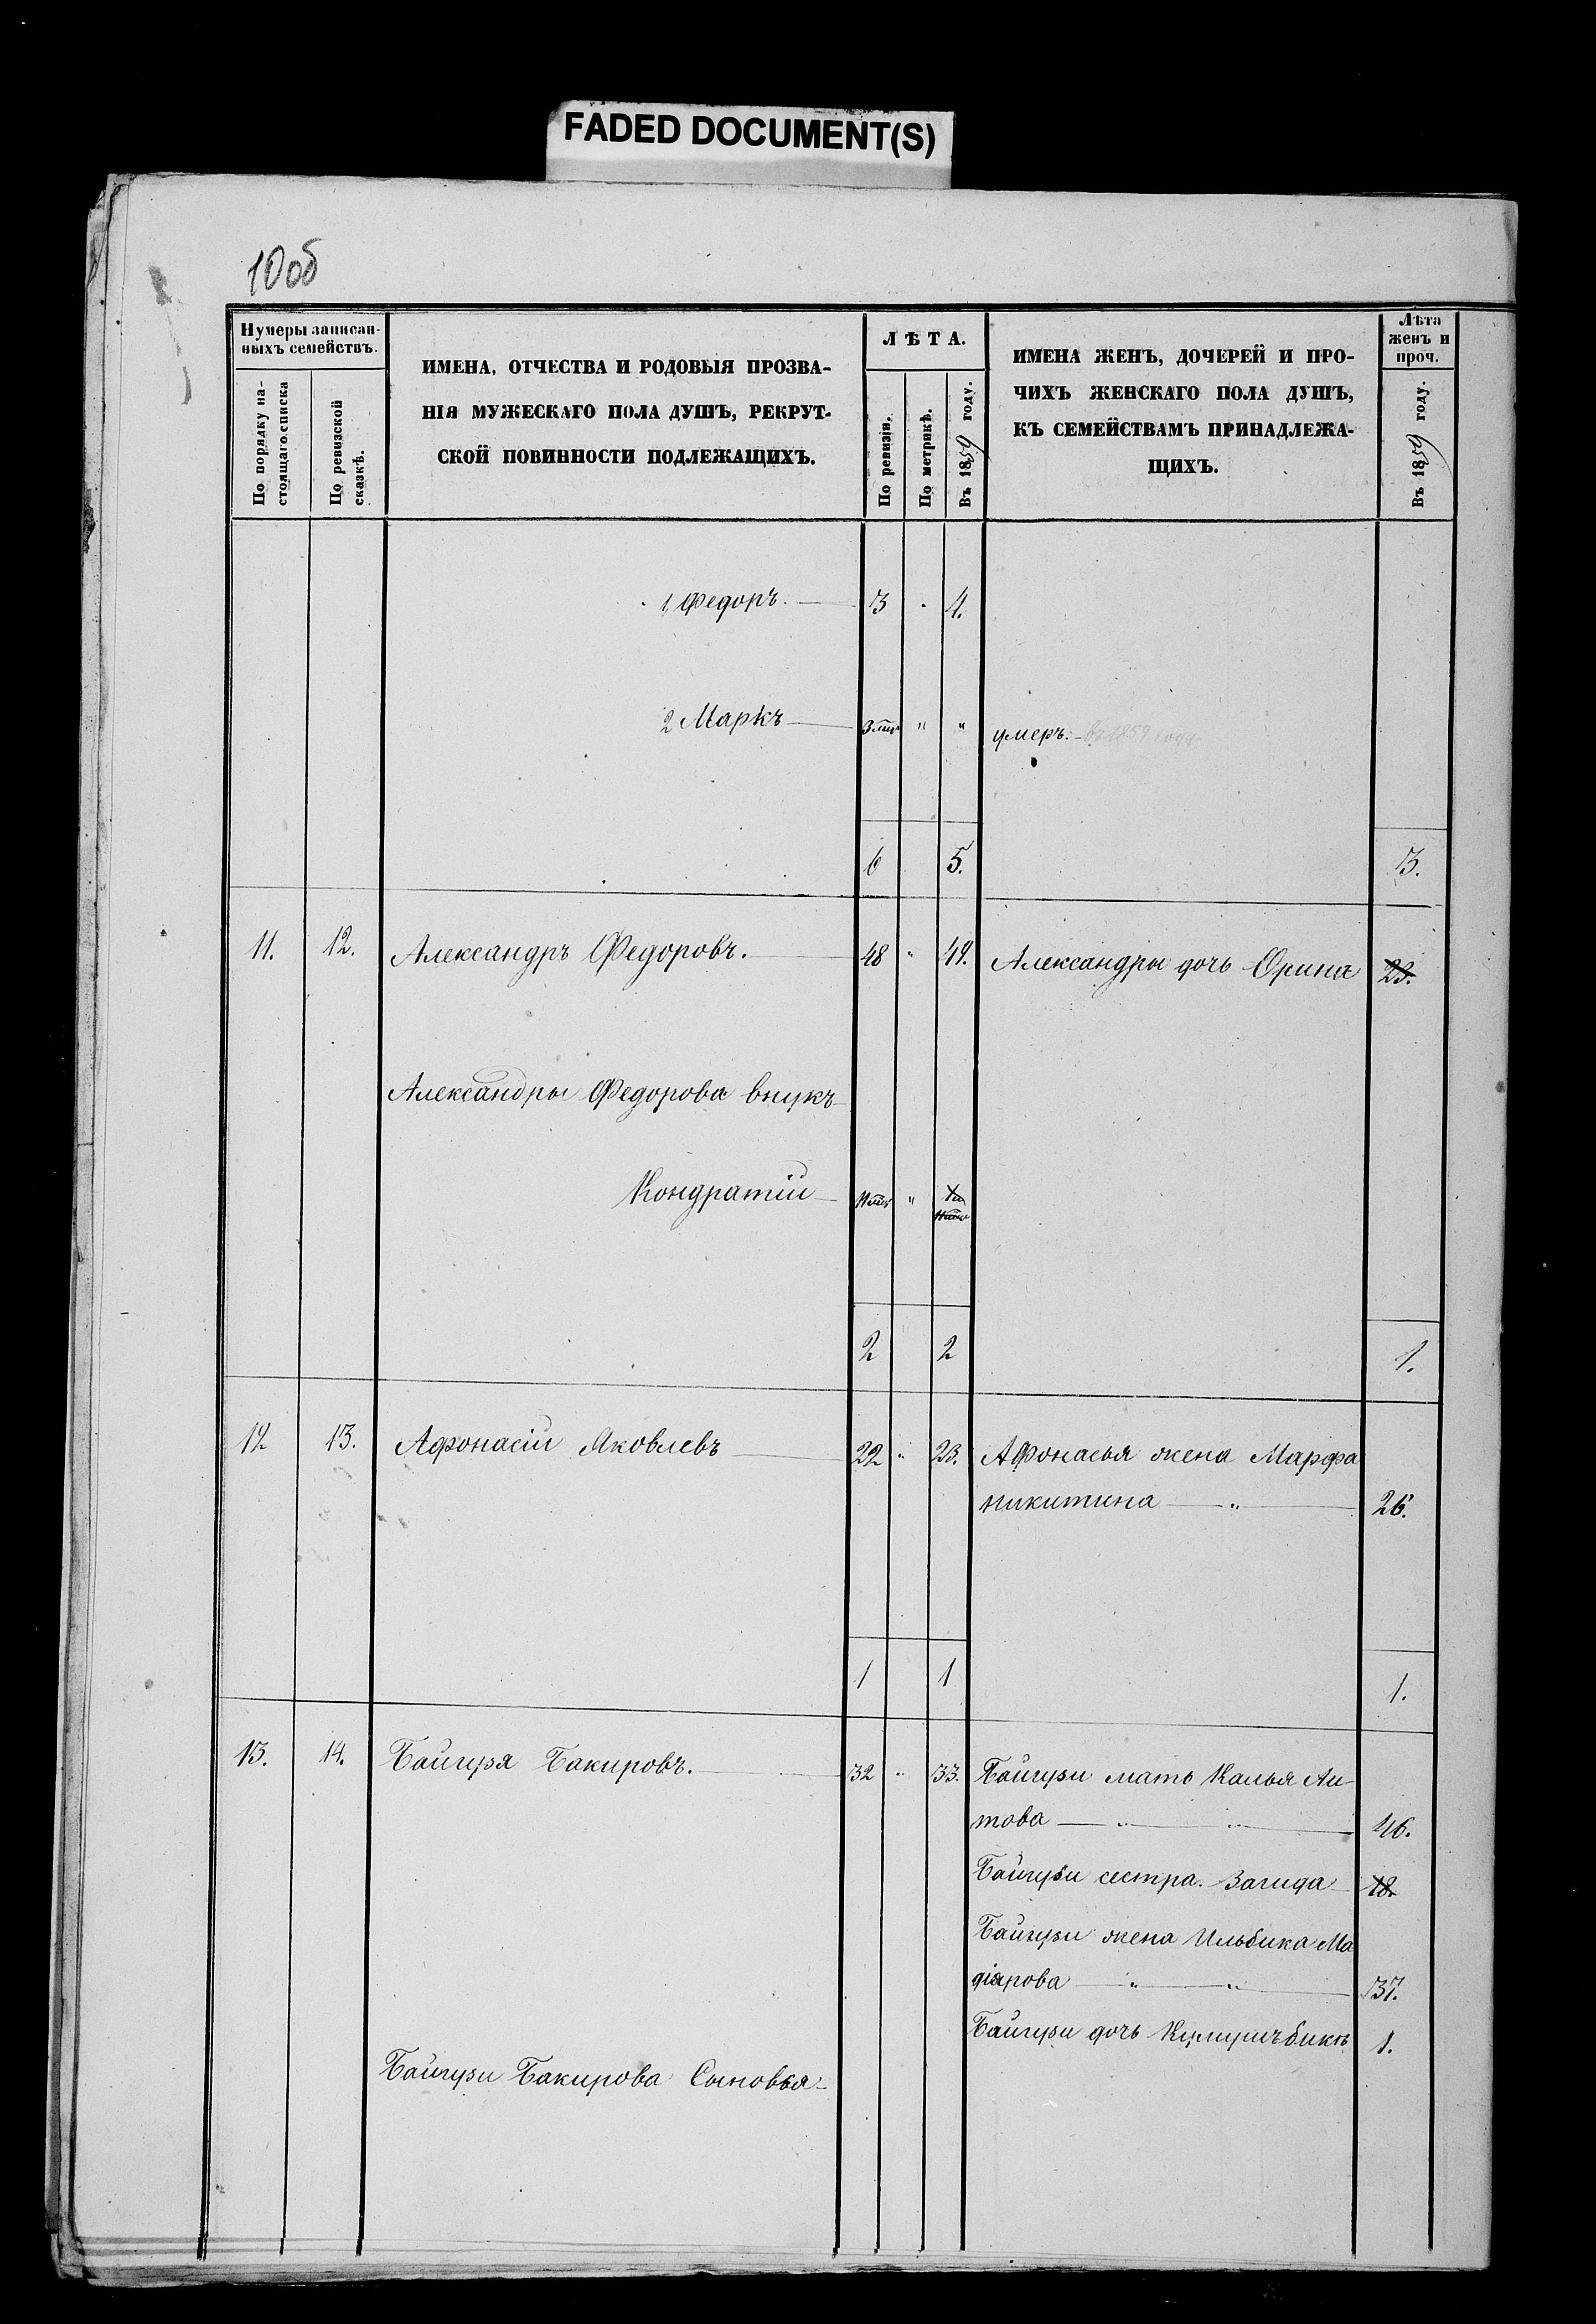 FADED DOCUMENT(S)
10об
Нумеры записан-
ныхъ семействъ.
По порядку на-
стоящаго списка
По ревизской
сказкѣ.
ИМЕНА, ОТЧЕСТВА И РОДОВЫЯ ПРОЗВА-
НІЯ МУЖЕСКАГО ПОЛА ДУШЪ, РЕКРУТ-
СКОЙ ПОВИННОСТИ ПОДЛЕЖАЩИХЪ.
ЛѢТА.
По ревизіи.
По метрикѣ.
Въ 1859 году.
ИМЕНА ЖЕНЪ, ДОЧЕРЕЙ И ПРО-
ЧИХЪ ЖЕНСКАГО ПОЛА ДУШЪ,
КЪ СЕМЕЙСТВАМЪ ПРИНАДЛЕЖА-
ЩИХЪ.
Лѣта
женъ и
проч.
Въ 1859 году.
1, Федоръ. 3 " 4.
2 Маркъ " " умеръ. въ 1859 году
6 5. 3.
11. 12. Александръ Федоровъ. 48 " 49. Александры дочь Орина 23.
Александры Федорова внукъ
Кондратій "
2 2 1.
12 13. Афонасій Яковлевъ 22 " 23. Афонасья жена Марфа
никитина " 26.
1 1 1.
13. 14. Байгузя Бакировъ. 32 " 33. Байгузи мать Калья Аи-
това " " 46.
Байгузи сестра. Загида 18.
Байгузи жена Ильбика Ма
діярова " " 37.
Байгузи дочь 1.
Байгузи Бакирова Сыновья